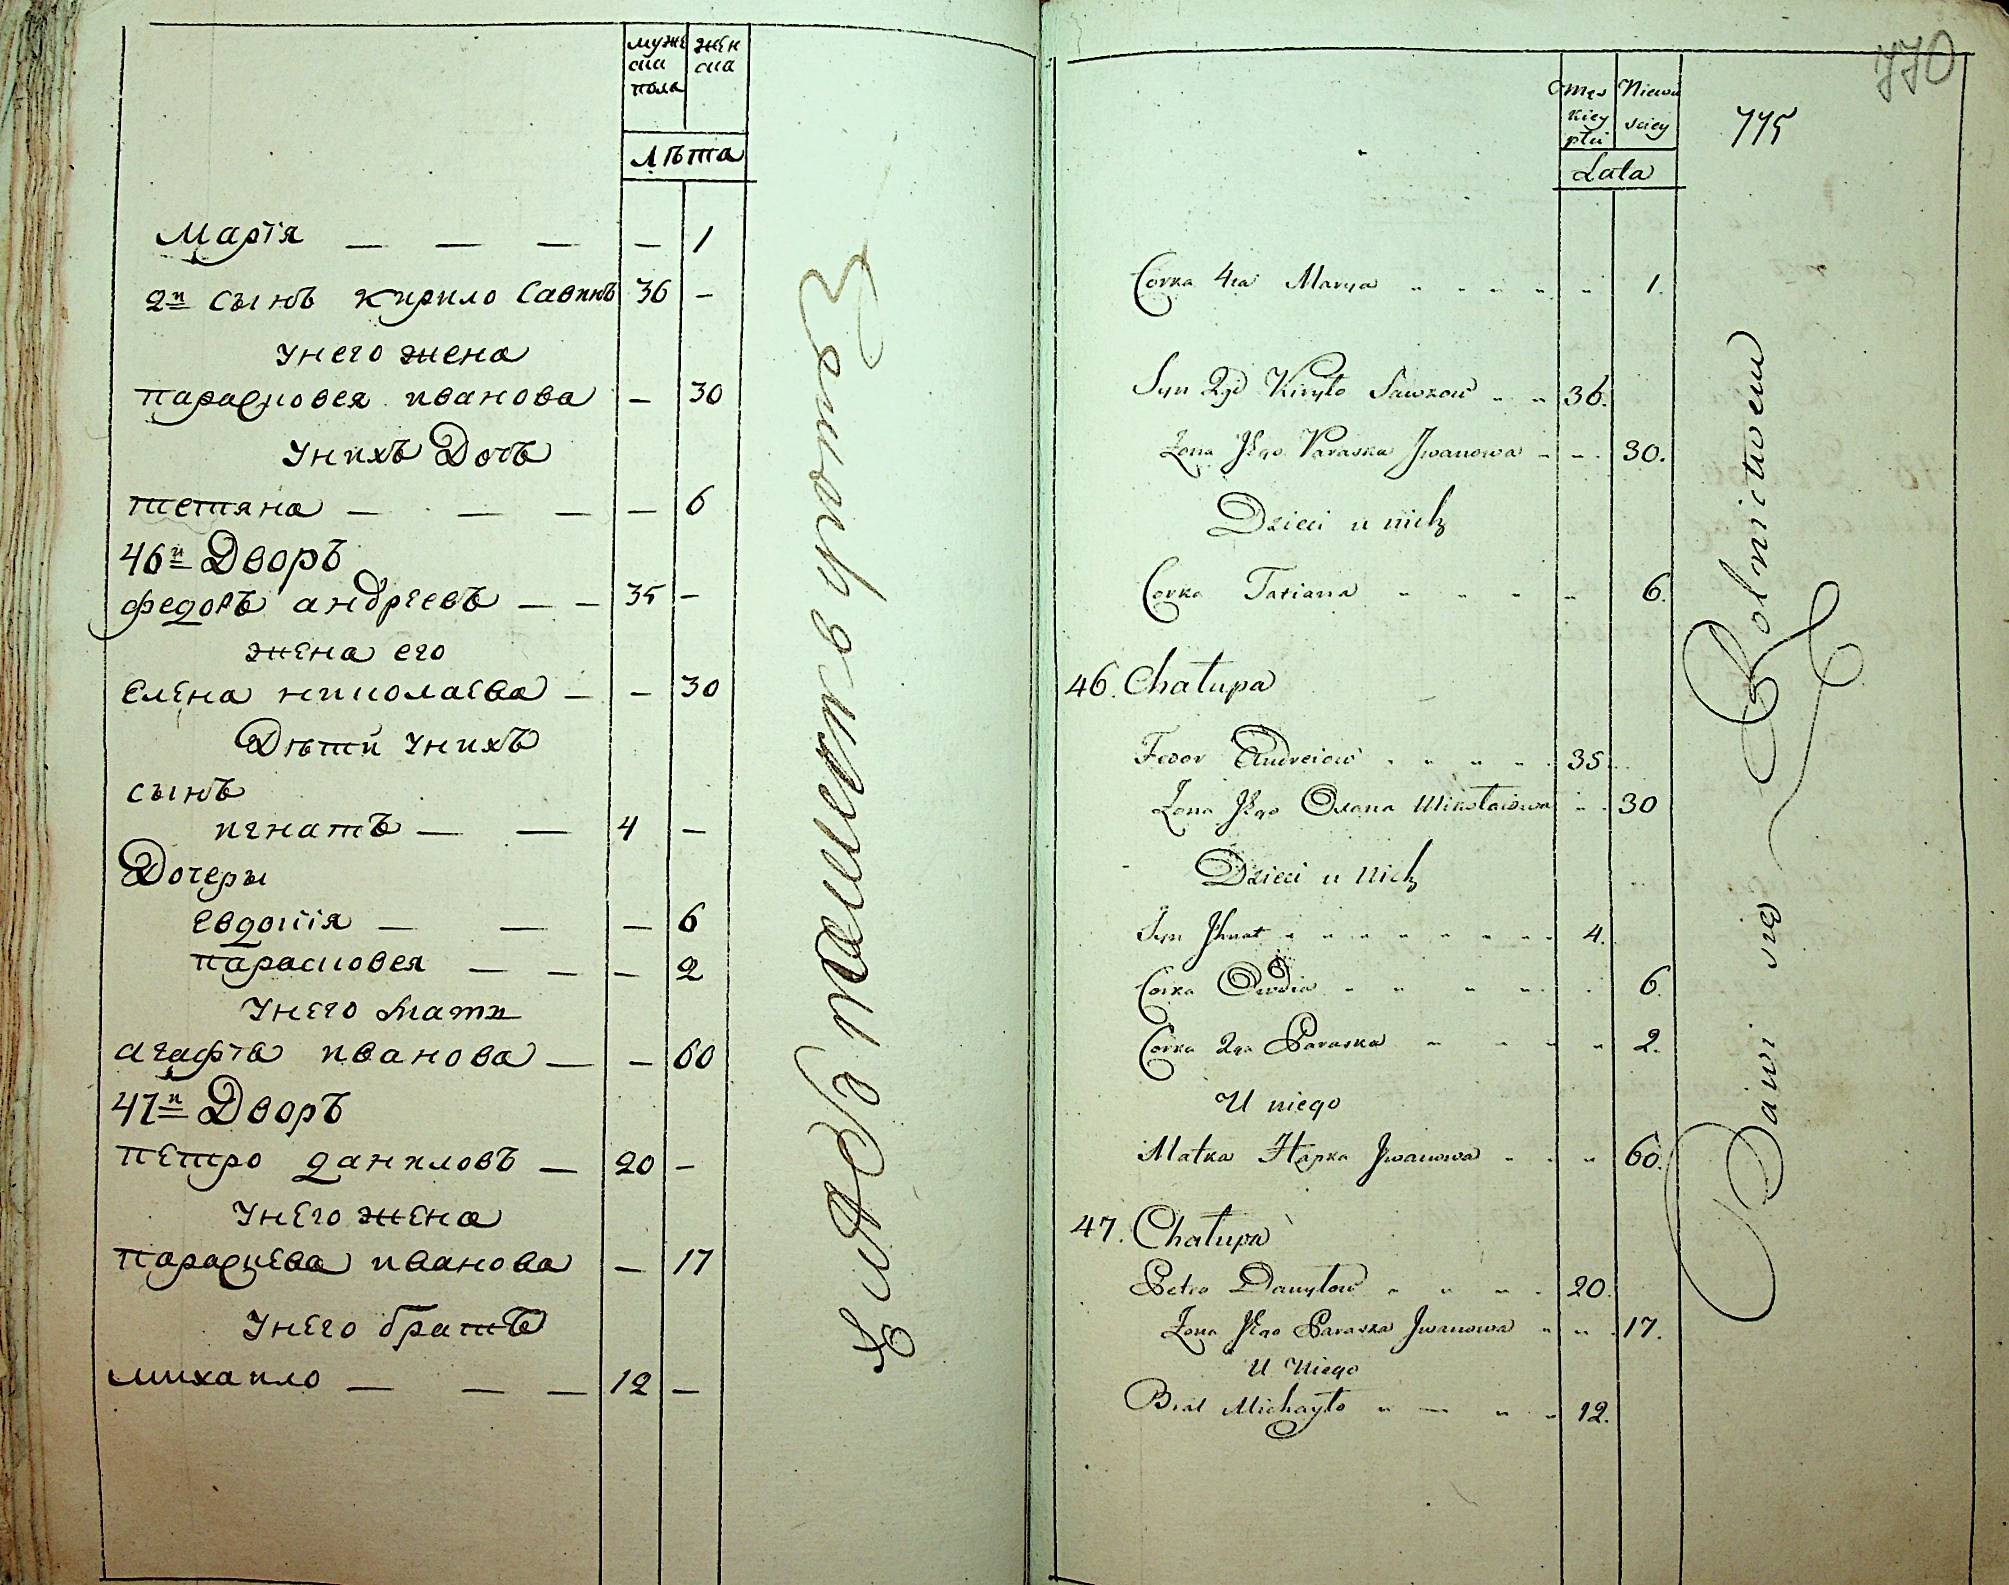 муже ска пола
жен ска
лѣта
Марїя — — — — 1
2й сынъ кирило Савинъ 36 —
унего жена
парасковея иванова — 30
унихъ Дочь
тетяна — — — — 6
46й Дворъ
федоръ андреевъ — — 35 —
жена его
елена николаева — — 30
Дѣти унихъ
сынъ
игнатъ — — 4 —
Дочеры
евдокїя — — — 6
парасковея — — — 2
унего мати
агафїя иванова — — 60
47й Дворъ
петро даниловъ — 20 —
унего жена
парасцева иванова — 17
унего братъ
михаило — — — 12 —
хлѣбопашествуютъ
770
775
męs kiey płci
Niewi sciey
Lata
Corka 4ta Marya 1.
Syn 2gi Kiryło Sawzow 36.
Żona Jego Paraska Jwanowa 30.
Dzieci u nich
Corka Tatiana 6.
46. Chałupa
Fedor Andreiow 35.
Żona Jego Olana Mikołaiowa 30
Dzieci u Nich
Syn Jhnat 4.
Corka Owdia 6.
Corka 2ga Paraska 2.
U niego
Matka Hapka Jwanowa 60.
47. Chałupa
Petro Danyłow 20.
Żona Jego Paraska Jwanowa 17.
U Niego
Brat Michayło 12.
Bawi się Rolnictwem